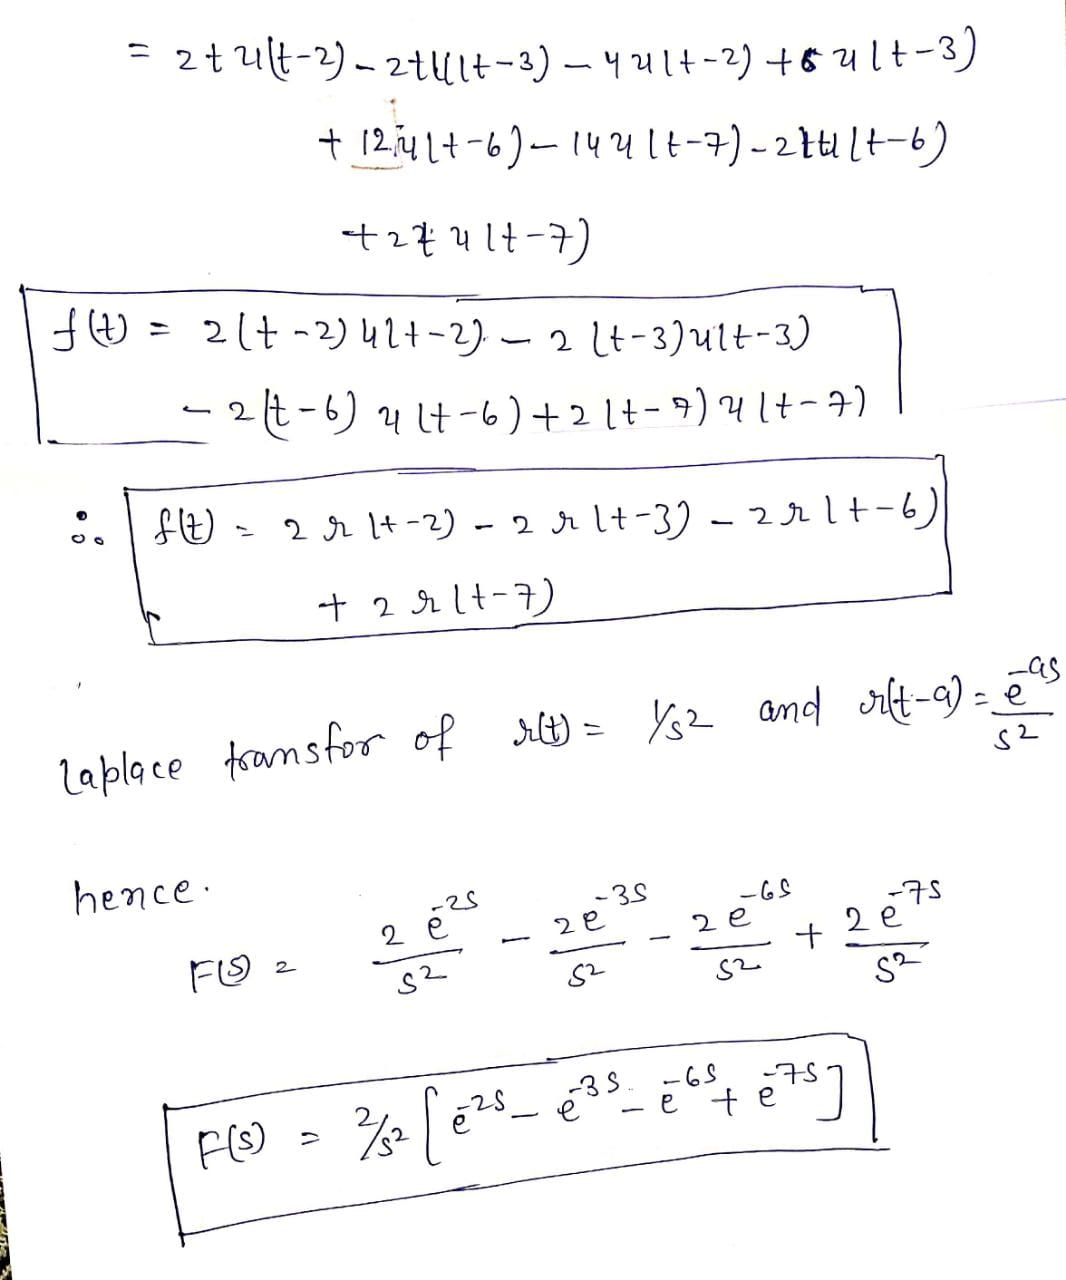 = 2tu(t-2) - 2tu(t-3) - 4u(t-2) + 6u(t-3)
+ 12u(t-6) - 14u(t-7) - 2tu(t-6)
+ 2tu(t-7)
f(t) = 2(t-2)u(t-2) - 2(t-3)u(t-3)
- 2(t-6)u(t-6) + 2(t-7)u(t-7)
∴ f(t) = 2r(t-2) - 2r(t-3) - 2r(t-6)
+ 2r(t-7)
Laplace transfor of r(t) = 1/s² and r(t-a) = e^{-as}/s²
hence.
F(s) = 2e^{-2s}/s² - 2e^{-3s}/s² - 2e^{-6s}/s² + 2e^{-7s}/s²
F(s) = 2/s² [e^{-2s} - e^{-3s} - e^{-6s} + e^{-7s}]